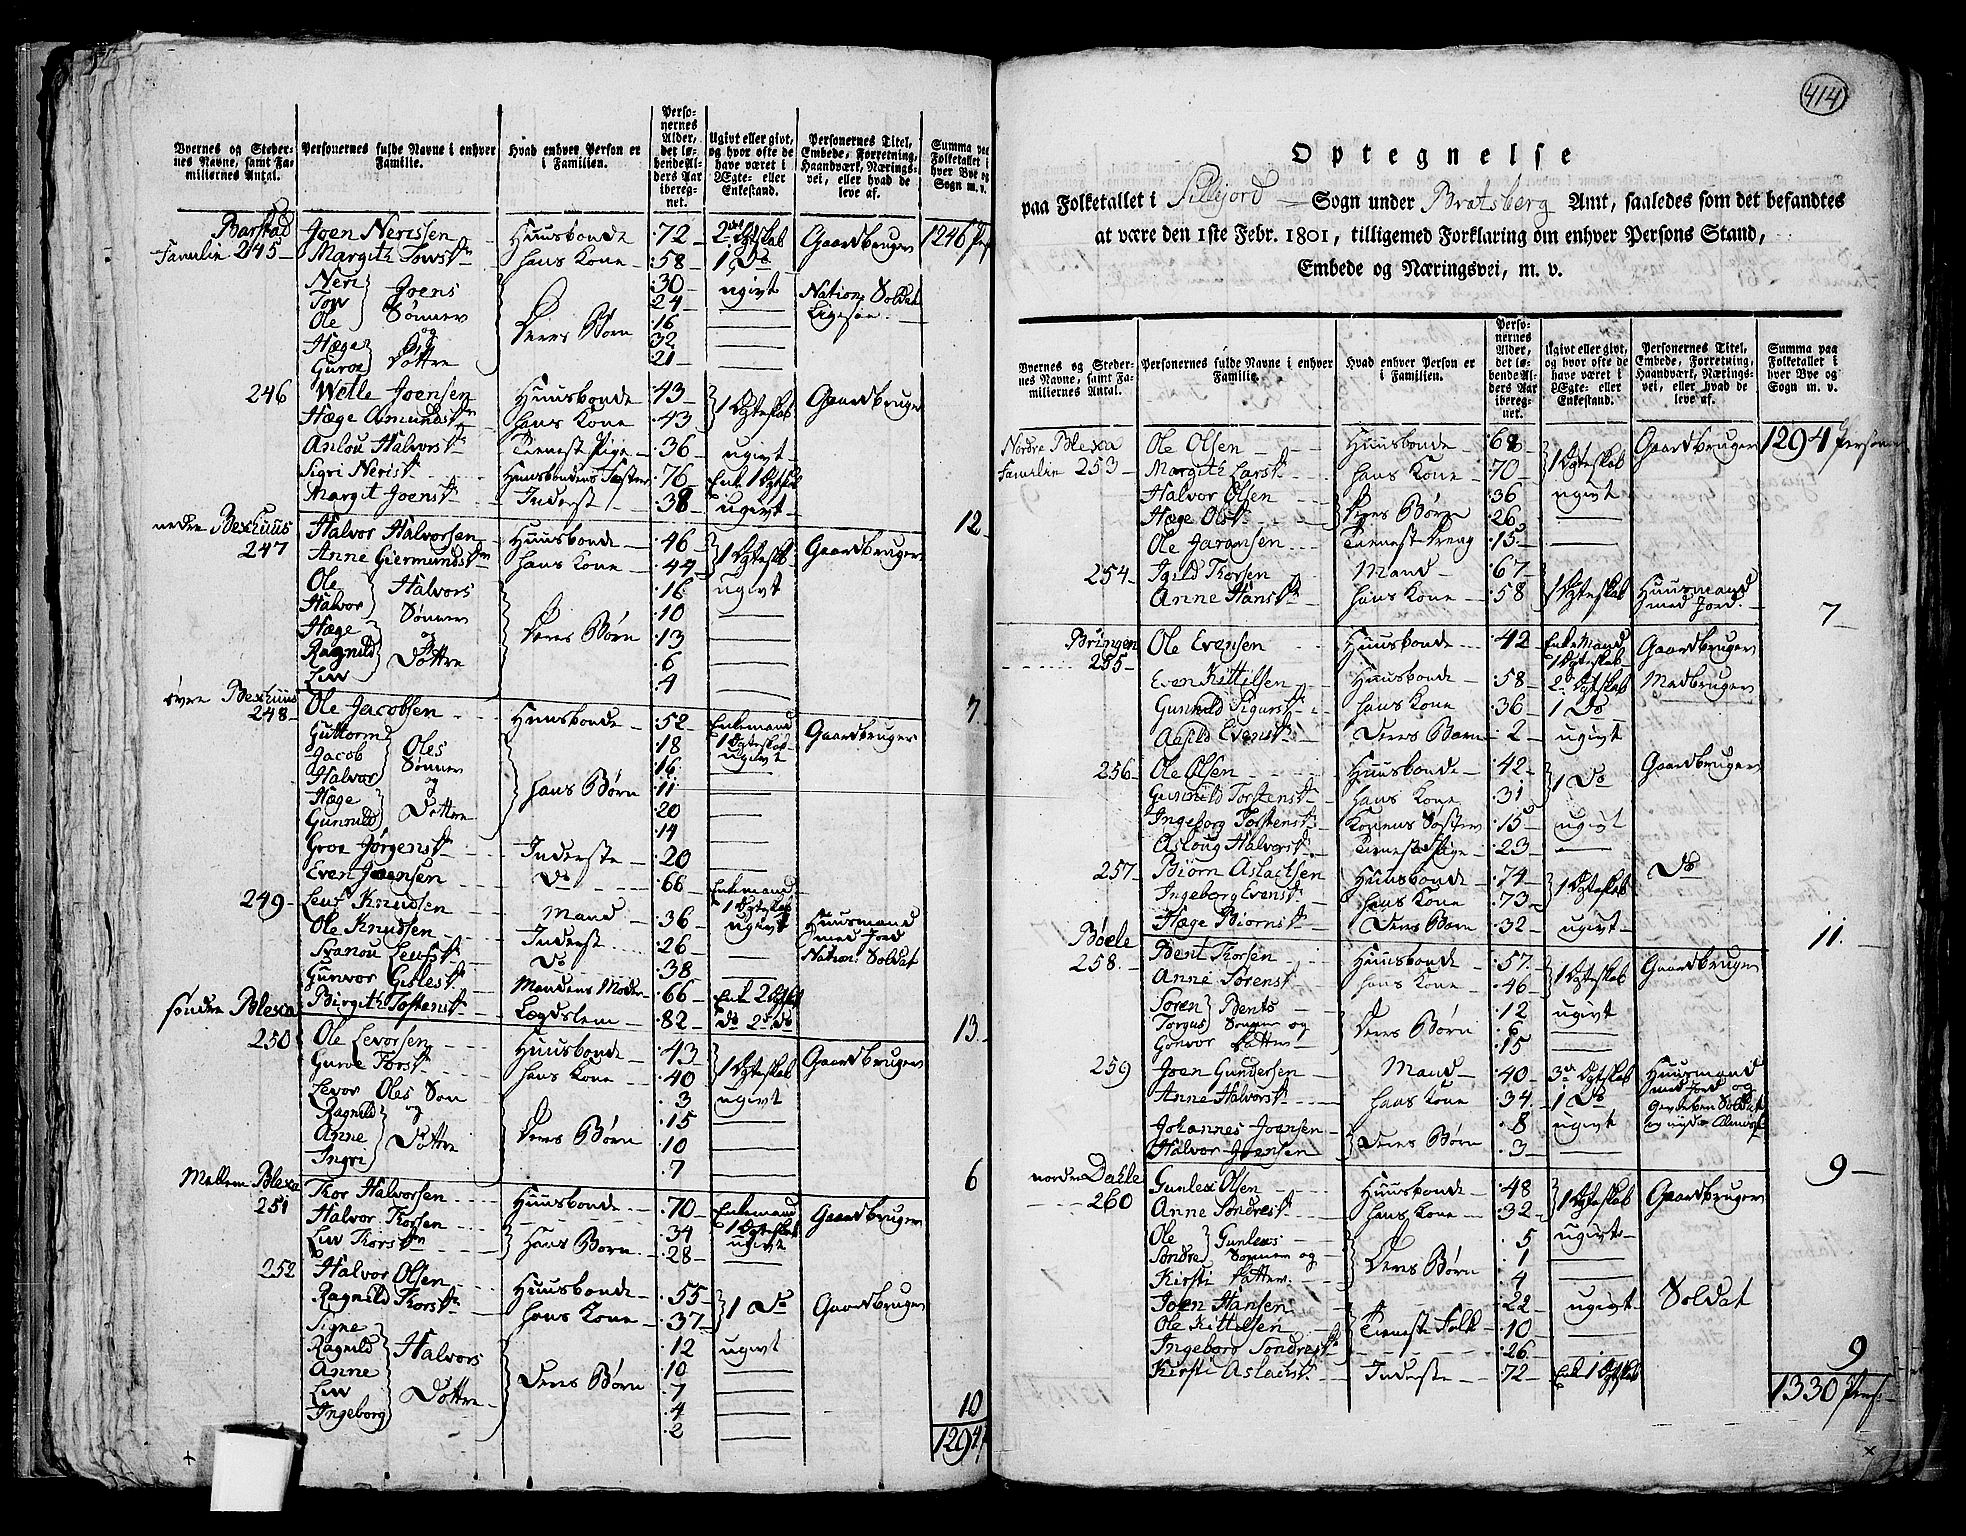 Byernes og Stedernes Navne, samt Familiernes Antal. | Personernes fulde Navne i enhver Familie. | Hvad enhver Person er i Familien. | Personernes Alder, det løbende Alders Aar iberegnet. | Ugivt eller givt, og hvor ofte de have været i Ægte- eller Enkestand. | Personernes Titel, Embede, Forretning, Haandværk, Næringsvei, eller hvad de leve af. | Summa paa Folketallet i hver Bye og Sogn m. v.
Barstad Joen Nerissen Huusbonde 72 2det Ægteskab Gaardbruger 1246 Pers
Familie 245 Margith Towsdr hans Kone 58 1 Do
Neri Joens 30 ugivt Nation. Soldat
Tow Sønner 24 Ligesaa
Ole og Deres Børn 16
Hæge 32
Guroe Døttre 21
246 Welle Joensen Huusbonde 43 1 Ægteskab Gaardbruger
Hæge Amundsdr hans Kone 43
Anlou Halvorsdr Tieneste Pige 36 ugivt
Sigri Nerisdr Huusbondens Søster 76 Enke 1 Ægtesk
Margit Joensdr Inderst 38 ugivt 12
nedre Bexhuus Halvor Halvorsen Huusbonde 46 1 Ægteskab Gaardbruger
247 Anne Giermundsdr hans Kone 44
Ole Halvors 16 ugivt
Halvor Sønner 10
Hæge og Deres Børn 13
Ragnild Døttre 6
Liv 4
øvre Bexhuus Ole Jacobsen Huusbonde 52 Enkemand 1 Ægteskab Gaardbruger 7
248 Guttorm Oles 18 ugivt
Jacob Sønner 16
Halvor og hans Børn 11
Hæge 20
Gunnild Døttre 14
Groe Jørgensdr Inderste 20
Even Joensen Do 66 Enkemand 1 Ægteskab
249 Leuf Knudsen Mand 36 ugivt Huusmand med Jord
Ole Knudsen Inderst 26 Nation. Soldat
Svanou Leufsdr Do 38
Gunvor Gislesdr Mandens Moder 66 Enke 2 Ægtesk
søndre Blexa Birgith Tostensdr Lægdslem 82 do 2 do 13
250 Ole Levorsen Huusbonde 43 1 Ægteskab Gaardbruger
Gurve Torsdr hans Kone 40
Levor Oles Søn 3 ugivt
Ragnild og 15
Anne Døttre Deres Børn 10
Ingri 7 6
Mellem Blexa Thor Halvorsen Huusbonde 70 Enkemand 1 Ægteskab Gaardbruger
251 Halvor Thorsen Hans Børn 34 ugivt
Liv Thorsdr 28
252 Halvor Olsen Huusbonde 55 1 Do Gaardbruger
Ragnild Thorsdr hans Kone 37
Signe 12 ugivt
Ragnild Halvors 10
Anne Deres Børn 7
Liv Døttre 4
Ingeborg 2 10
1294
414
Optegnelse
paa Folketallet i Sillejord Sogn under Bratsberg Amt, saaledes som det befandtes
at være den 1ste Febr. 1801, tilligemed Forklaring om enhver Persons Stand,
Embede og Næringsvei, m. v.
Byernes og Stedernes Navne, samt Familiernes Antal. | Personernes fulde Navne i enhver Familie. | Hvad enhver Person er i Familien. | Personernes Alder, det løbende Alders Aar iberegnet. | Ugivt eller givt, og hvor ofte de have været i Ægte- eller Enkestand. | Personernes Titel, Embede, Forretning, Haandværk, Næringsvei, eller hvad de leve af. | Summa paa Folketallet i hver Bye og Sogn m. v.
Nordre Blexa Ole Olsen Huusbonde 68 1 Ægteskab Gaardbruger 1294 Personer
Familie 253 Margith Larsdr hans Kone 70
Halvor Olsen Deres Børn 36 ugivt
Hæge Olsdr 26
Ole Jaransen Tieneste Dreng 15
254 Igild Thorsen Mand 67 1 Ægteskab Huusmand
Anne Hansdr hans Kone 58 med Jord 7
Bringen Ole Evensen Huusbonde 42 Enkemand 1 Ægteskab Gaardbruger
255 Even Kittilsen Huusbonde 58 2 Ægteskab Medbruger
Gunnild Sigursdr hans Kone 36 1 Do
Aasild Evensdr Deres Barn 2 ugivt
256 Ole Olsen Huusbonde 42 1 Do Gaardbruger
Gunnild Torstensdr hans Kone 31
Ingeborg Torstensdr Konens Søster 15 ugivt
Asloug Halvorsdr Tieneste Pige 23
257 Biørn Aslachsen Huusbonde 74 1 Ægteskab Do
Ingeborg Evensdr hans Kone 73
Hæge Biørnsdr Deres Barn 32 ugivt 11
Bøele Bent Thorsen Huusbonde 57 1 Ægteskab Gaardbruger
258 Anne Sørensdr hans Kone 46
Soren Bents 12 ugivt
Torgus Sønner og Deres Børn 6
Gonvor Datter 15
259 Joen Gundersen Mand 40 3de Ægteskab Huusmand med Jord og
Anne Halvorsdr hans Kone 34 1 Do Soldat
Johannes Joensen Deres Børn 8 ugivt
Halvor Joensen 3 9
nordre Dahle Gunlex Olsen Huusbonde 48 1 Ægteskab Gaardbruger
260 Anne Sondresdr hans Kone 32
Ole Gunlexs 5 ugivt
Sondre Sønner og Deres Børn 1
Kirsti Datter 4
Joen Hansen 22 ugivt Soldat
Ole Kittilsen Tieneste Folk 10
Ingeborg Sondresdr 26
Kirsti Aslachsdr Inderste 72 Enke 1 Ægteskab 9
1330 Pers